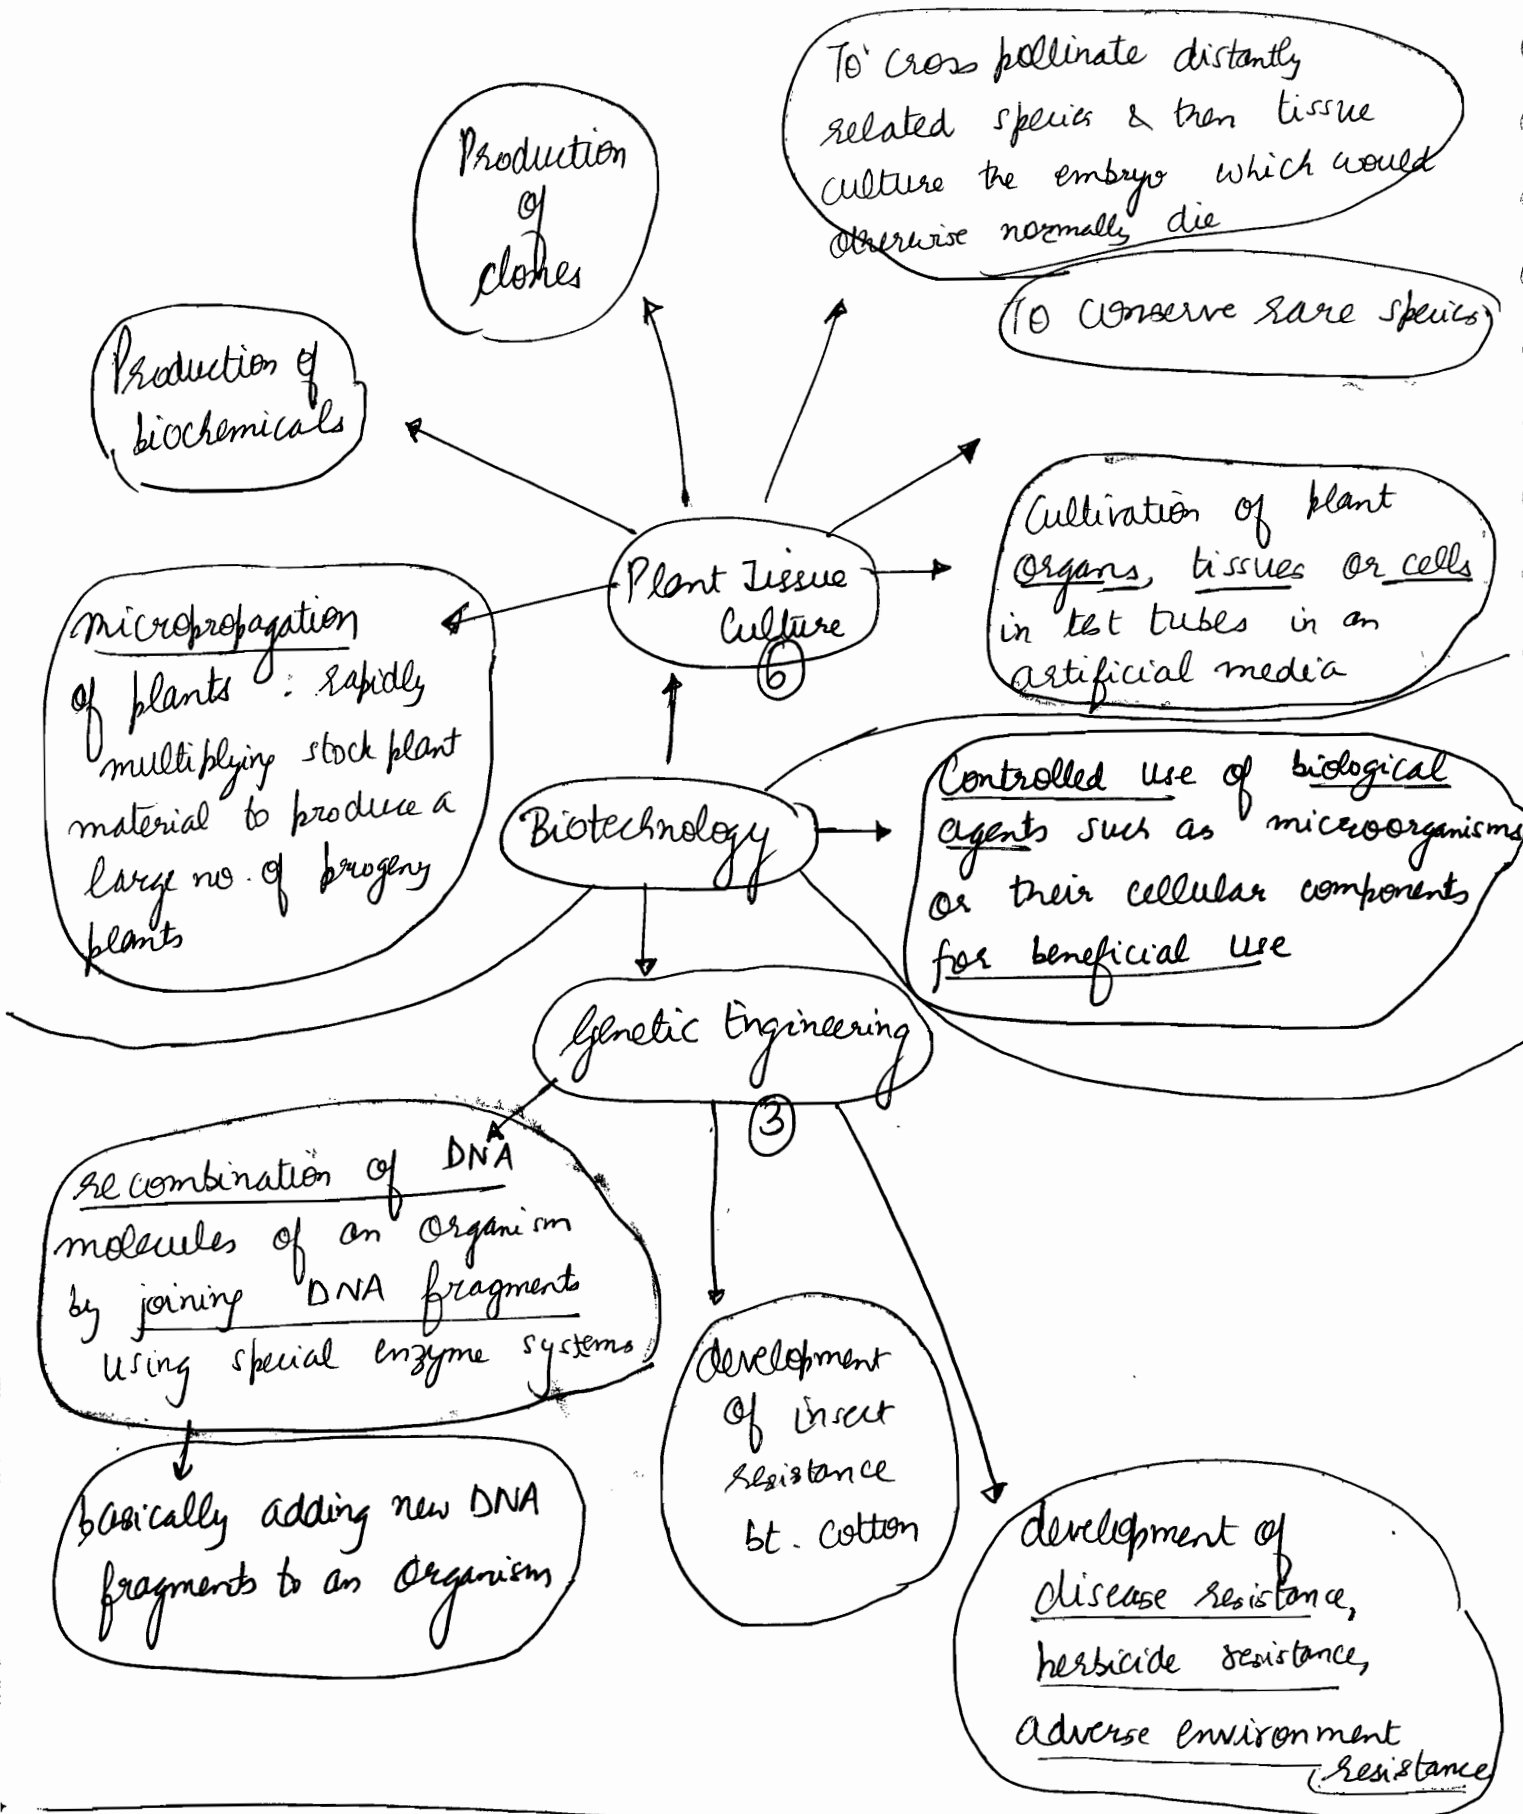 To cross pollinate distantly
related species & then tissue
culture the embryo which would
otherwise normally die
Production
of
clones
To conserve rare species
Production of
biochemicals
Cultivation of plant
organs, tissues or cells
in test tubes in an
artificial media
Plant Tissue
Culture
6
micropropagation
of plants : rapidly
multiplying stock plant
material to produce a
large no. of progeny
plants
Biotechnology
Controlled use of biological
agents such as microorganisms
or their cellular components
for beneficial use
Genetic Engineering
3
recombination of DNA
molecules of an organism
by joining DNA fragments
using special enzyme systems
basically adding new DNA
fragments to an organism
development
of insect
resistance
bt. cotton
development of
disease resistance,
herbicide resistance,
adverse environment
resistance